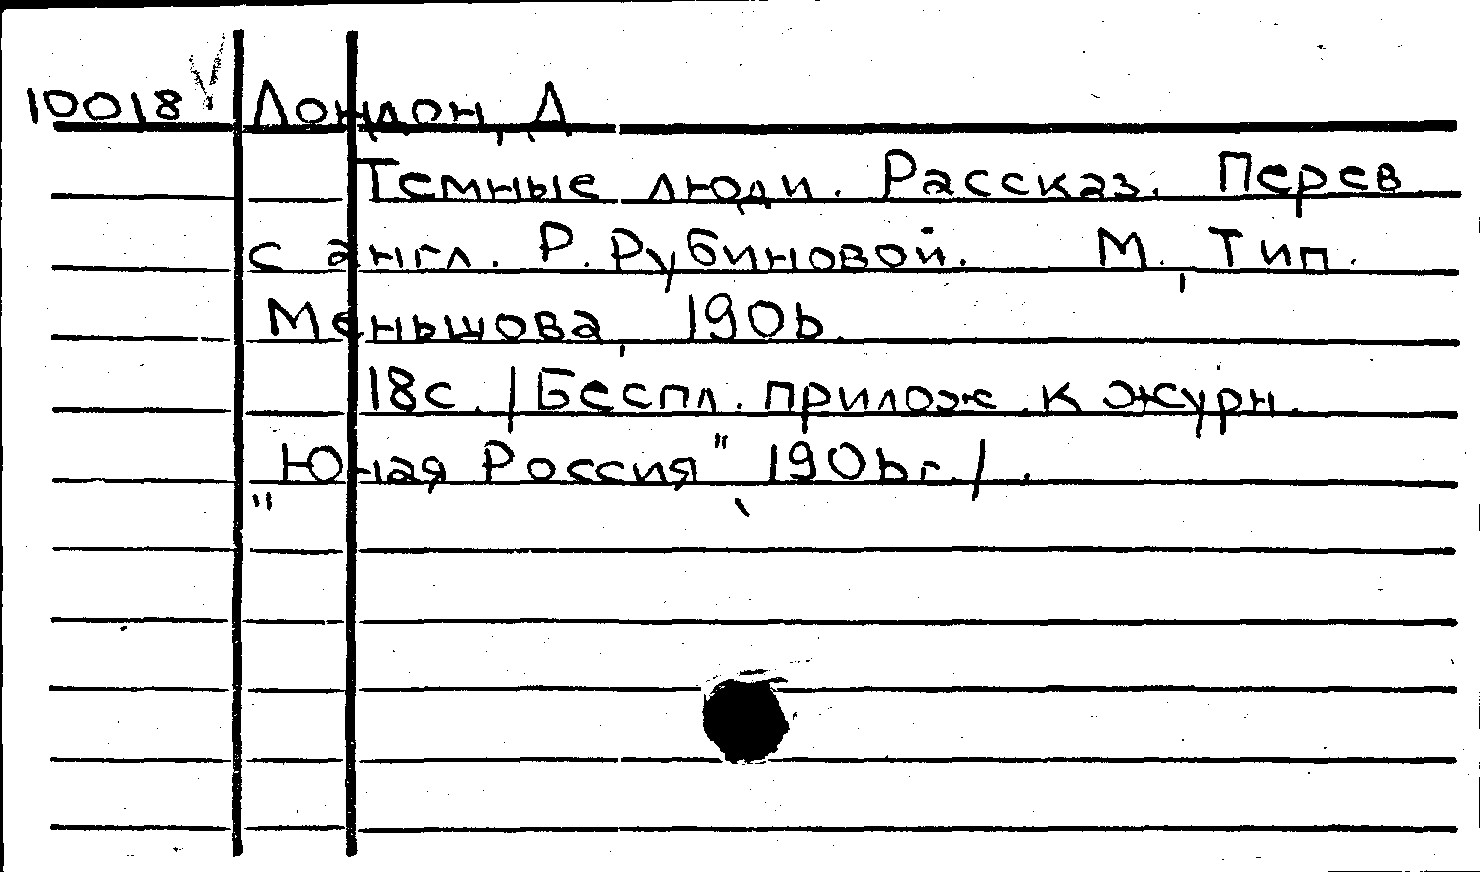 10018 Лондон, Д
Темные люди. Рассказ. Перев
с англ. Р. Рубиновой. М., Тип.
Меньшова, 1906.
18с. /Беспл. прилож. к журн.
"Юная Россия", 1906г./.